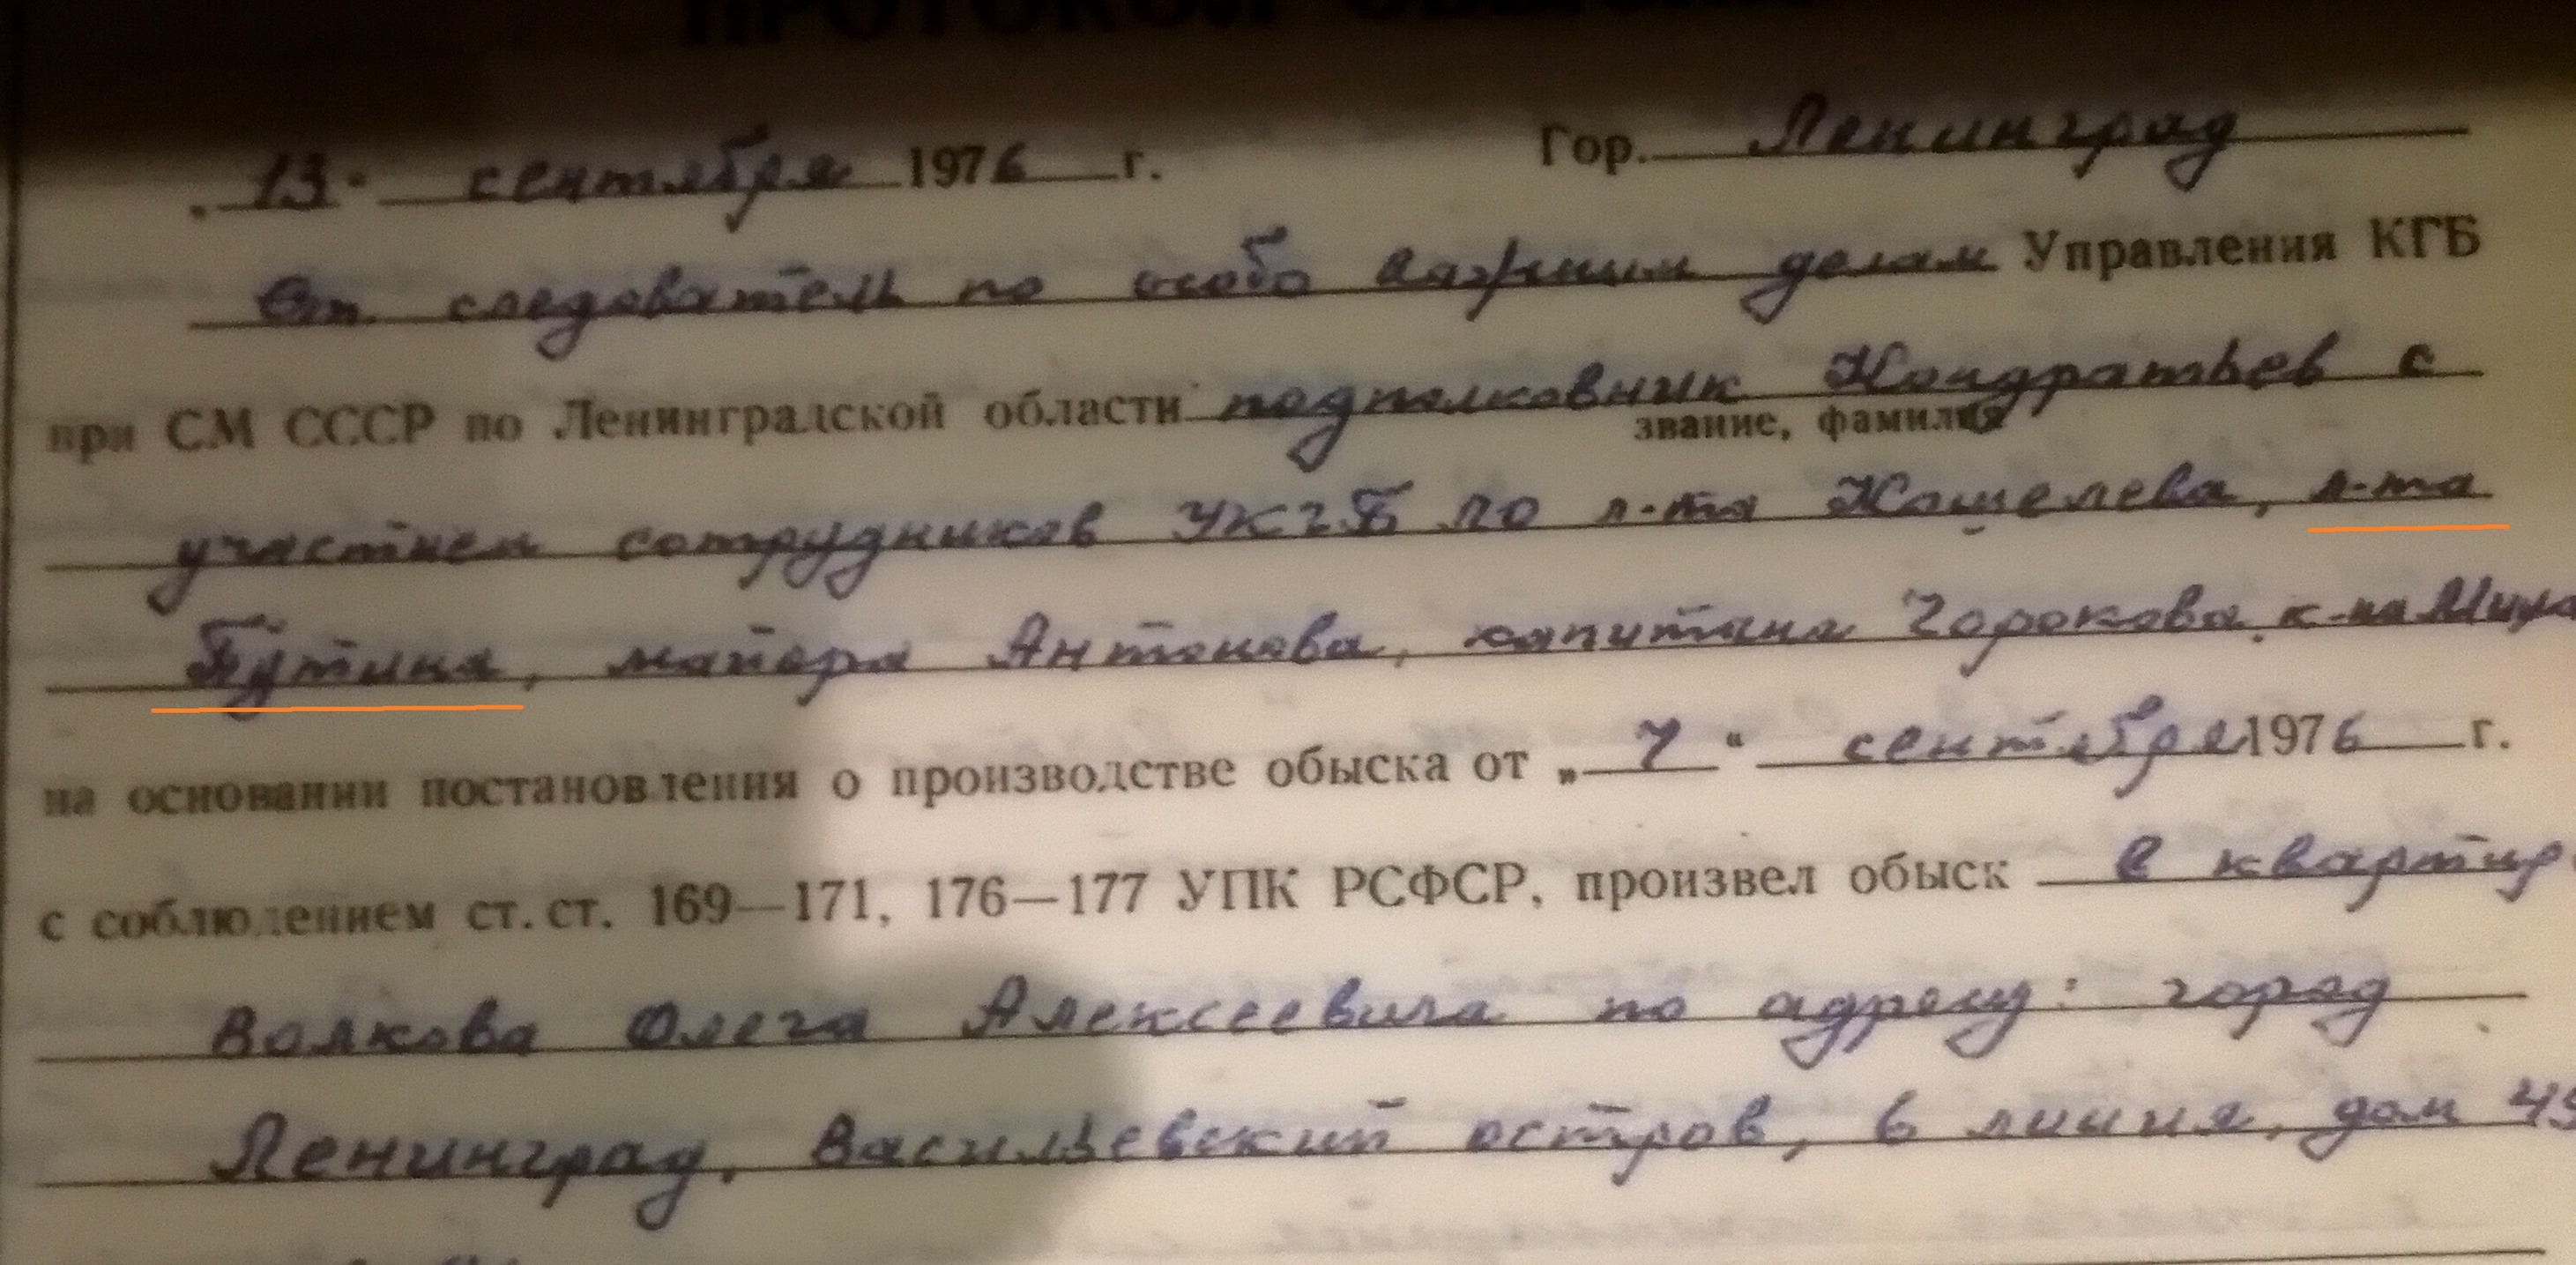 ПРОТОКОЛ ОБЫСКА
„13" сентября 1976 г. Гор. Ленинград
Ст. следователь по особо важным делам Управления КГБ
при СМ СССР по Ленинградской области подполковник Кондратьев с
звание, фамилия
участием сотрудников УКГБ ЛО л-та Кошелева, л-та
Путина, майора Антонова, капитана Горохова, к-на
на основании постановления о производстве обыска от „7" сентября 1976 г.
с соблюдением ст. ст. 169—171, 176—177 УПК РСФСР, произвел обыск в квартир
Волкова Олега Алексеевича по адресу: город
Ленинград, Васильевский остров, 6 линия, дом